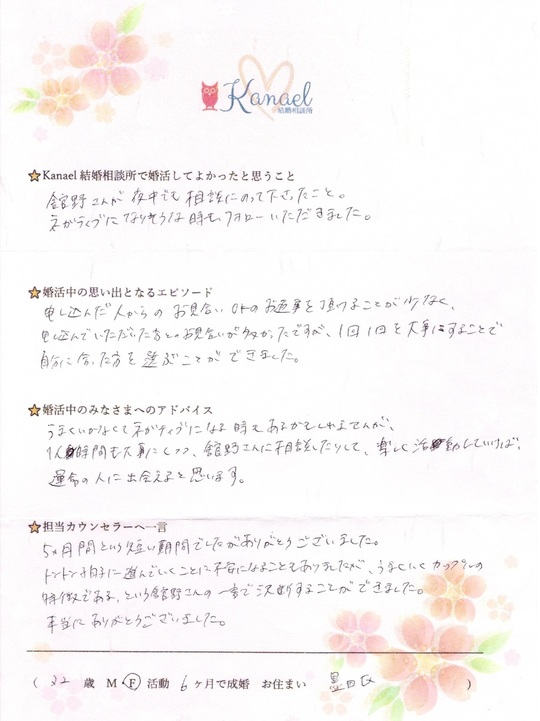 Kanael
結婚相談所
Kanael 結婚相談所で婚活してよかったと思うこと
舘野さんが夜中でも相談にのって下さったこと。
ネガティブになりそうな時もフォローいただきました。
婚活中の思い出となるエピソード
申し込んだ人からのお見合いOKのお返事を頂けることが少なく、
申し込んでいただいた方とのお見合いが多かったですが、1回1回を大事にすることで
自分に合った方を選ぶことができました。
婚活中のみなさまへのアドバイス
うまくいかなくてネガティブになる時もあるかもしれませんが、
1人時間も大事にしつつ、舘野さんに相談したりして、楽しく活動していけば、
運命の人に出会えると思います。
担当カウンセラーへ一言
5ヶ月間という短い期間でしたがありがとうございました。
トントン拍子に進んでいくことに不安になることもありましたが、うまくいくカップルの
特徴である、という舘野さんの一言で決断することができました。
本当にありがとうございました。
( 32 歳 M・F 活動 6 ヶ月で成婚 お住まい 墨田区 )